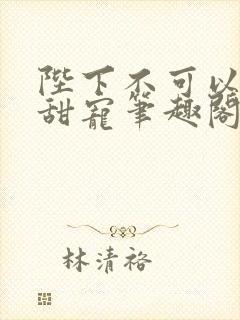 陛下不可以
甜寵筆趣閣
林清裕